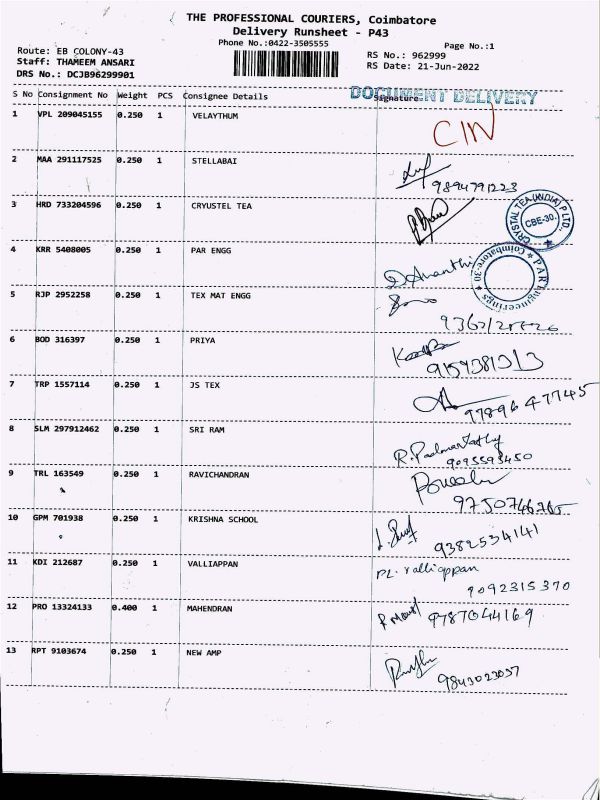 THE PROFESSIONAL COURIERS, Coimbatore
Delivery Runsheet - P43
Phone No.:0422-3505555
Page No.:1
Route: EB COLONY-43
RS No.: 962999
Staff: THAMEEM ANSARI
RS Date: 21-Jun-2022
DRS No.: DCJB96299901
DOCUMENT DELIVERY
S No Consignment No Weight PCS Consignee Details Signature
1 VPL 209045155 0.250 1 VELAYTHUM CIN
2 MAA 291117525 0.250 1 STELLABAI
9894791223
3 HRD 733204596 0.250 1 CRYUSTEL TEA
CRYSTAL TEA (INDIA) P LTD. CBE-30.
4 KRR 5408005 0.250 1 PAR ENGG
PAR Engineerings Coimbatore-30
Ananthi
5 RJP 2952258 0.250 1 TEX MAT ENGG
6 BOD 316397 0.250 1 PRIYA
9159381313
7 TRP 1557114 0.250 1 JS TEX
9789647745
8 SLM 297912462 0.250 1 SRI RAM
R.
9095593450
9 TRL 163549 0.250 1 RAVICHANDRAN
9750746765
10 GPM 701938 0.250 1 KRISHNA SCHOOL
9382534141
11 KDI 212687 0.250 1 VALLIAPPAN
PL. valliappan
9092315370
12 PRO 13324133 0.400 1 MAHENDRAN
9787044169
13 RPT 9103674 0.250 1 NEW AMP
9843023037